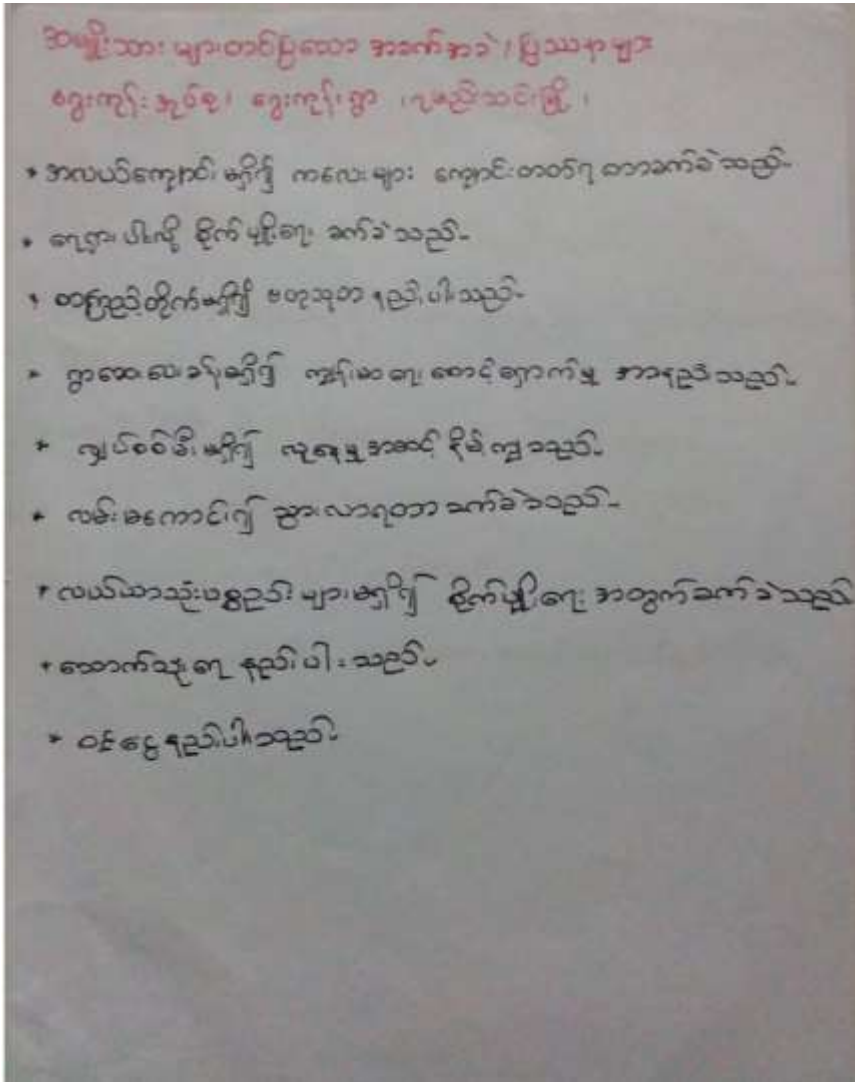 အမျိုးသား များတင်ပြသော အခက်အခဲ၊ ပြဿနာများ
ရွေးကုန်း အုပ်စု၊ ရွေးကုန်း ရွာ ၊ ရမည်းသင်းမြို့ ၊
* အလယ်ကျောင်း မရှိ၍ ကလေးများ ကျောင်းတတ်ရတာခက်ခဲသည်-
* ရေရှားပါးလို့ စိုက်ပျိုးရေး ခက်ခဲသည်-
* စာကြည့်တိုက်မရှိ၍ ဗဟုသုတ နည်းပါးသည်-
* ရွာဆေးပေးခန်းမရှိ၍ ကျန်းမာရေး စောင့်ရှောက်မှု အားနည်းသည်-
* လျှပ်စစ်မီးမရှိ၍ လူနေမှုအဆင့် နိမ့်ကျသည်-
* လမ်းမကောင်း၍ သွားလာရတာ ခက်ခဲသည်-
* လယ်ယာသုံးပစ္စည်း များမရှိ၍ စိုက်ပျိုးရေး အတွက်ခက်ခဲသည်
* သောက်သုံးရေ နည်းပါးသည်-
* ဝင်ငွေနည်းပါးသည်-